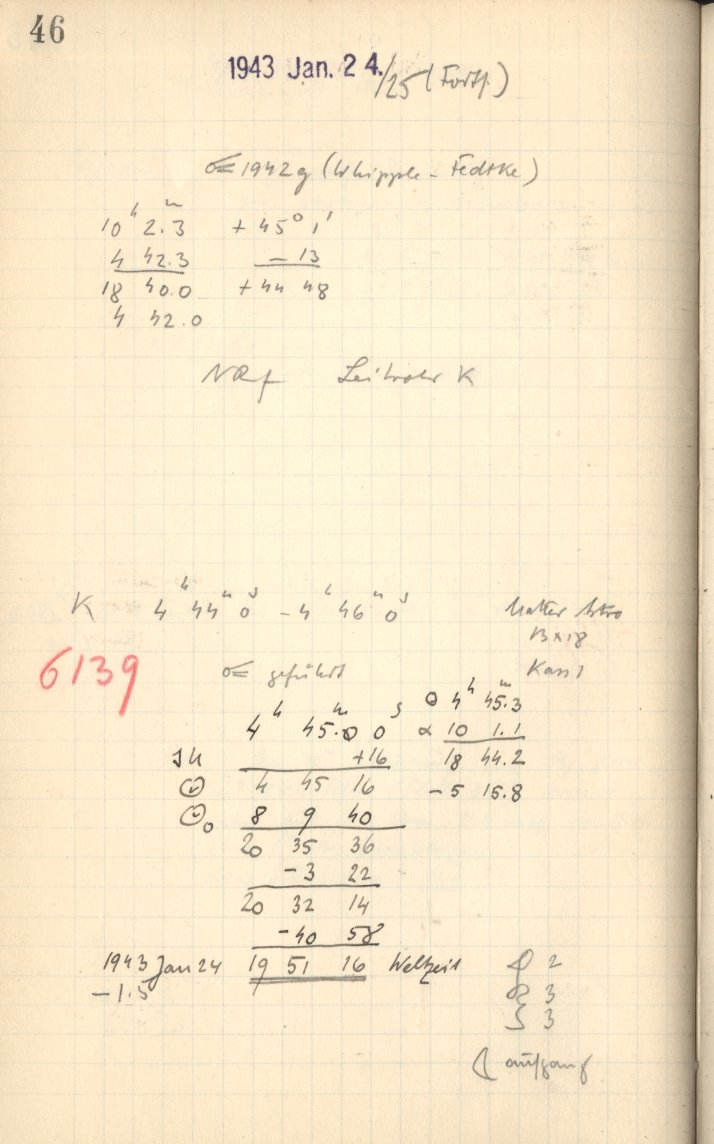 46
1943 Jan. 24./25 (Forts.)
☄ 1942g (Whipple - Fedtke)
10ʰ 2.3ᵐ + 45° 1'
4 42.3 - 13
18 40.0 + 44 48
4 42.0
Leitrohr K
K 4ʰ 44ᵐ 0ˢ - 4ʰ 46ᵐ 0ˢ
6139
☄ geführt Kass
4ʰ 45.0ᵐ 0ˢ
+16
4 45 16
8 9 40
20 35 36
-3 22
20 32 14
-40 58
1943 Jan 24 19 51 16 Weltzeit
-1.5
4ʰ 45.3ᵐ
α 10 1.1
18 44.2
-5 15.8
2
3
3
☾ aufgang